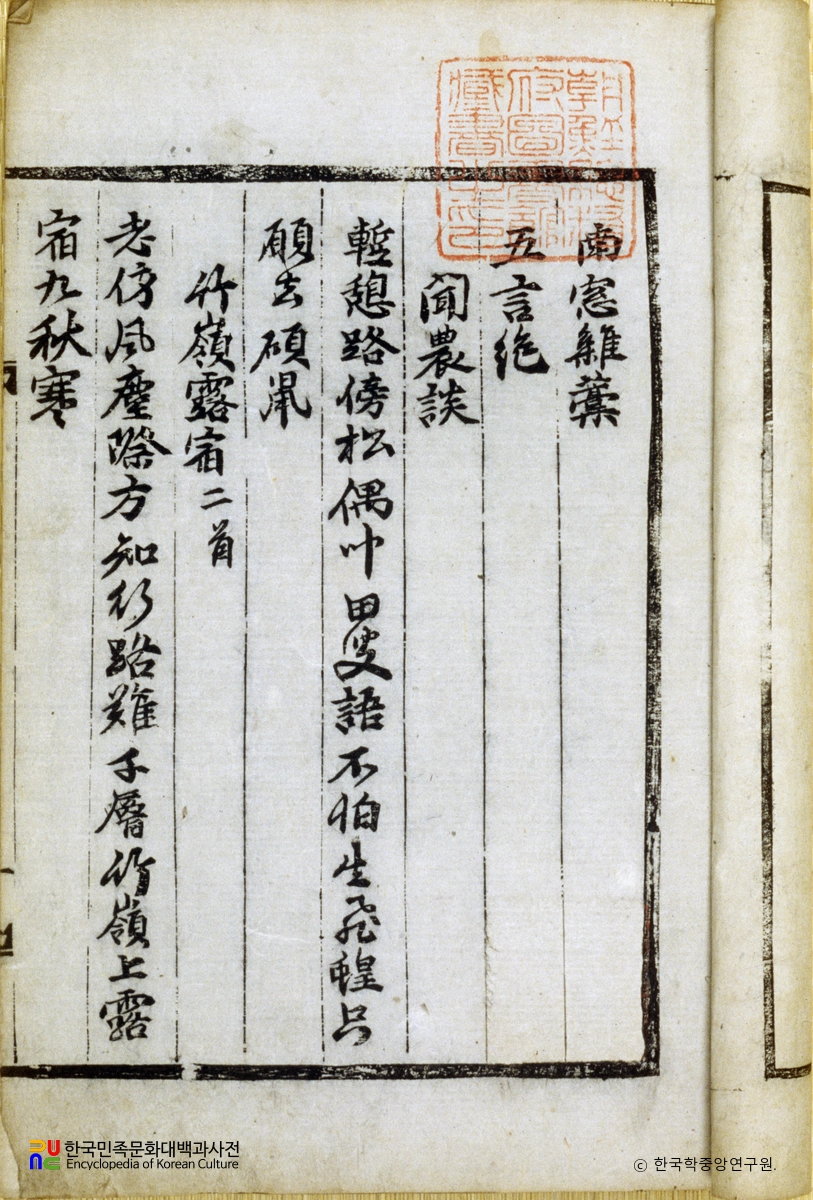 朝鮮總督
府圖書館
藏書之印
南窓雜藁
五言絶
聞農談
蹔憩路傍松偶叶田叟語不怕生飛蝗只
願去碩鼠
竹嶺露宿二首
老傍風塵際方知行路難千層竹嶺上露
宿九秋寒
한국민족문화대백과사전
Encyclopedia of Korean Culture
ⓒ 한국학중앙연구원.